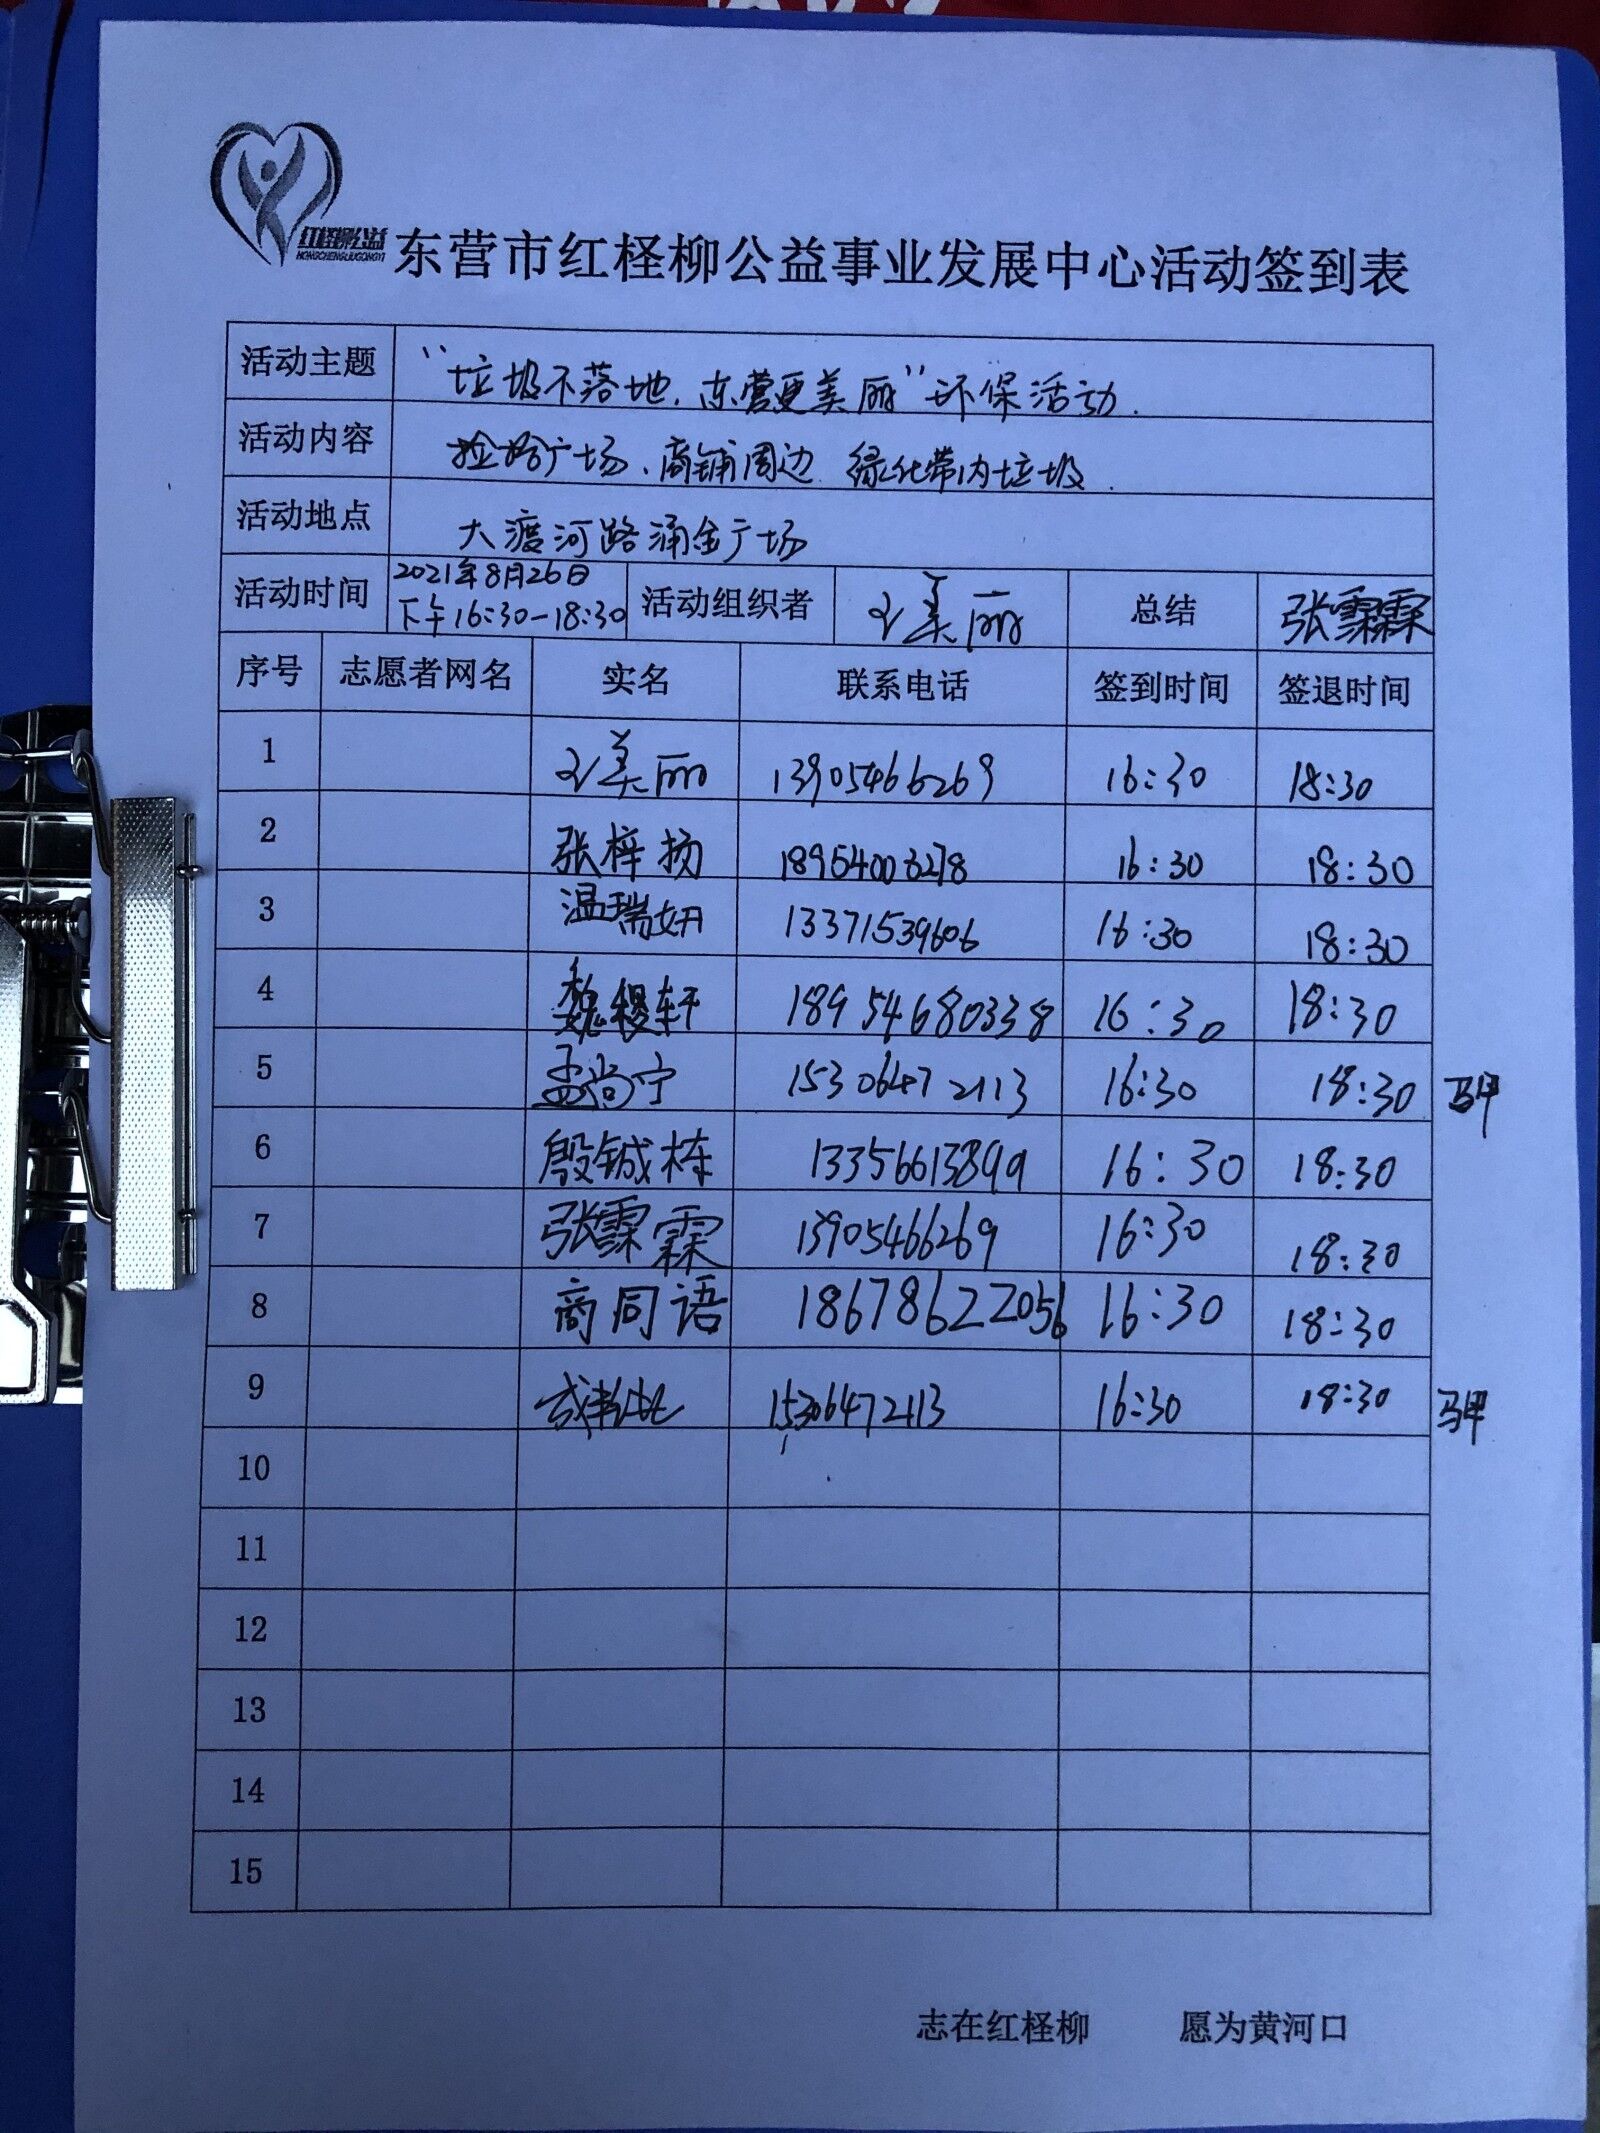 红柽柳公益
HONGCHENGLIUGONGYI
东营市红柽柳公益事业发展中心活动签到表
活动主题 “垃圾不落地，东营更美丽”环保活动.
活动内容 捡拾广场、商铺周边 绿化带内垃圾.
活动地点 大渡河路涌金广场
活动时间 2021年8月26日 下午16:30-18:30 活动组织者 王美丽 总结 张霖霖
序号 志愿者网名 实名 联系电话 签到时间 签退时间
1 王美丽 13905466269 16:30 18:30
2 张梓扬 18954006278 16:30 18:30
3 温瑞妍 13371539606 16:30 18:30
4 魏稷轩 18954680338 16:30 18:30
5 孟尚宁 15306472113 16:30 18:30 马甲
6 殷铖栋 13356613899 16:30 18:30
7 张霖霖 13905466269 16:30 18:30
8 商同语 18678622056 16:30 18:30
9 15306472113 16:30 18:30 马甲
10
11
12
13
14
15
志在红柽柳 愿为黄河口